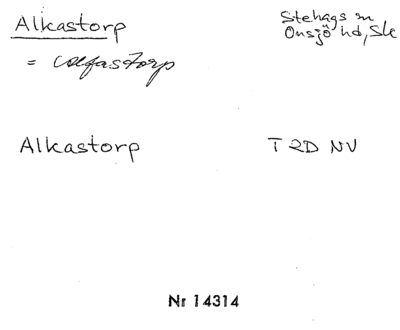 Alkastorp
Stehags sn
Onsjö hd, Sk
= Ulfastorp
Alkastorp
T 2D NV
Nr 14314